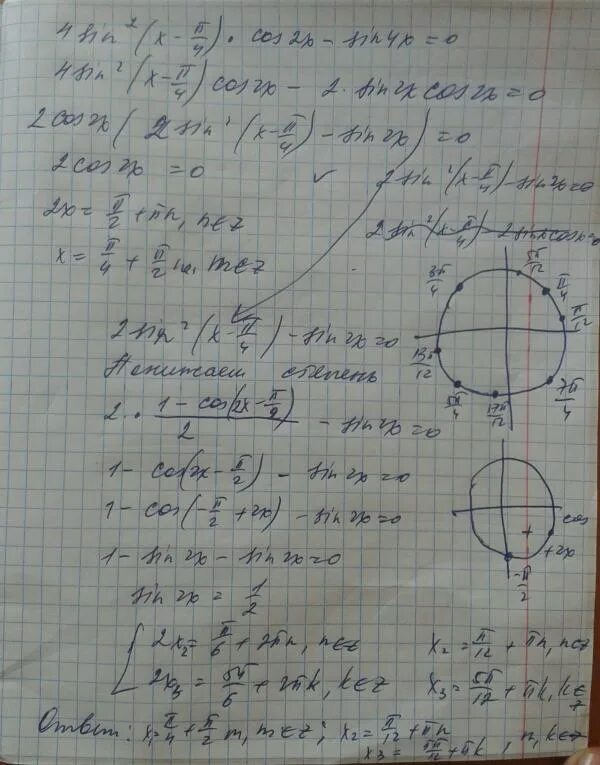 4 sin²(x - π/4) · cos2x - sin4x = 0
4 sin²(x - π/4) cos2x - 2 · sin2x cos2x = 0
2cos2x (2 sin²(x - π/4) - sin2x) = 0
2cos2x = 0 ✓ 2 sin²(x - π/4) - sin2x = 0
2x = π/2 + πn, n∈z
2 sin²(x - π/4) - 2 sinx cosx = 0
x = π/4 + π/2 m, m∈z
5π/12
3π/4 π/4
π/12
2 sin²(x - π/4) - sin2x = 0
Понижаем степень
13π/12
5π/4 17π/12 7π/4
2 · (1 - cos(2x - π/2))/2 - sin2x = 0
1 - cos(2x - π/2) - sin2x = 0
1 - cos(-π/2 + 2x) - sin2x = 0
cos
+
+2x
-π/2
1 - sin2x - sin2x = 0
sin2x = 1/2
2x₂ = π/6 + 2πn, n∈z x₂ = π/12 + πn, n∈z
2x₃ = 5π/6 + 2πk, k∈z x₃ = 5π/12 + πk, k∈z
Ответ: x₁ = π/4 + π/2 m, m∈z; x₂ = π/12 + πn
x₃ = 5π/12 + πk, n, k∈z